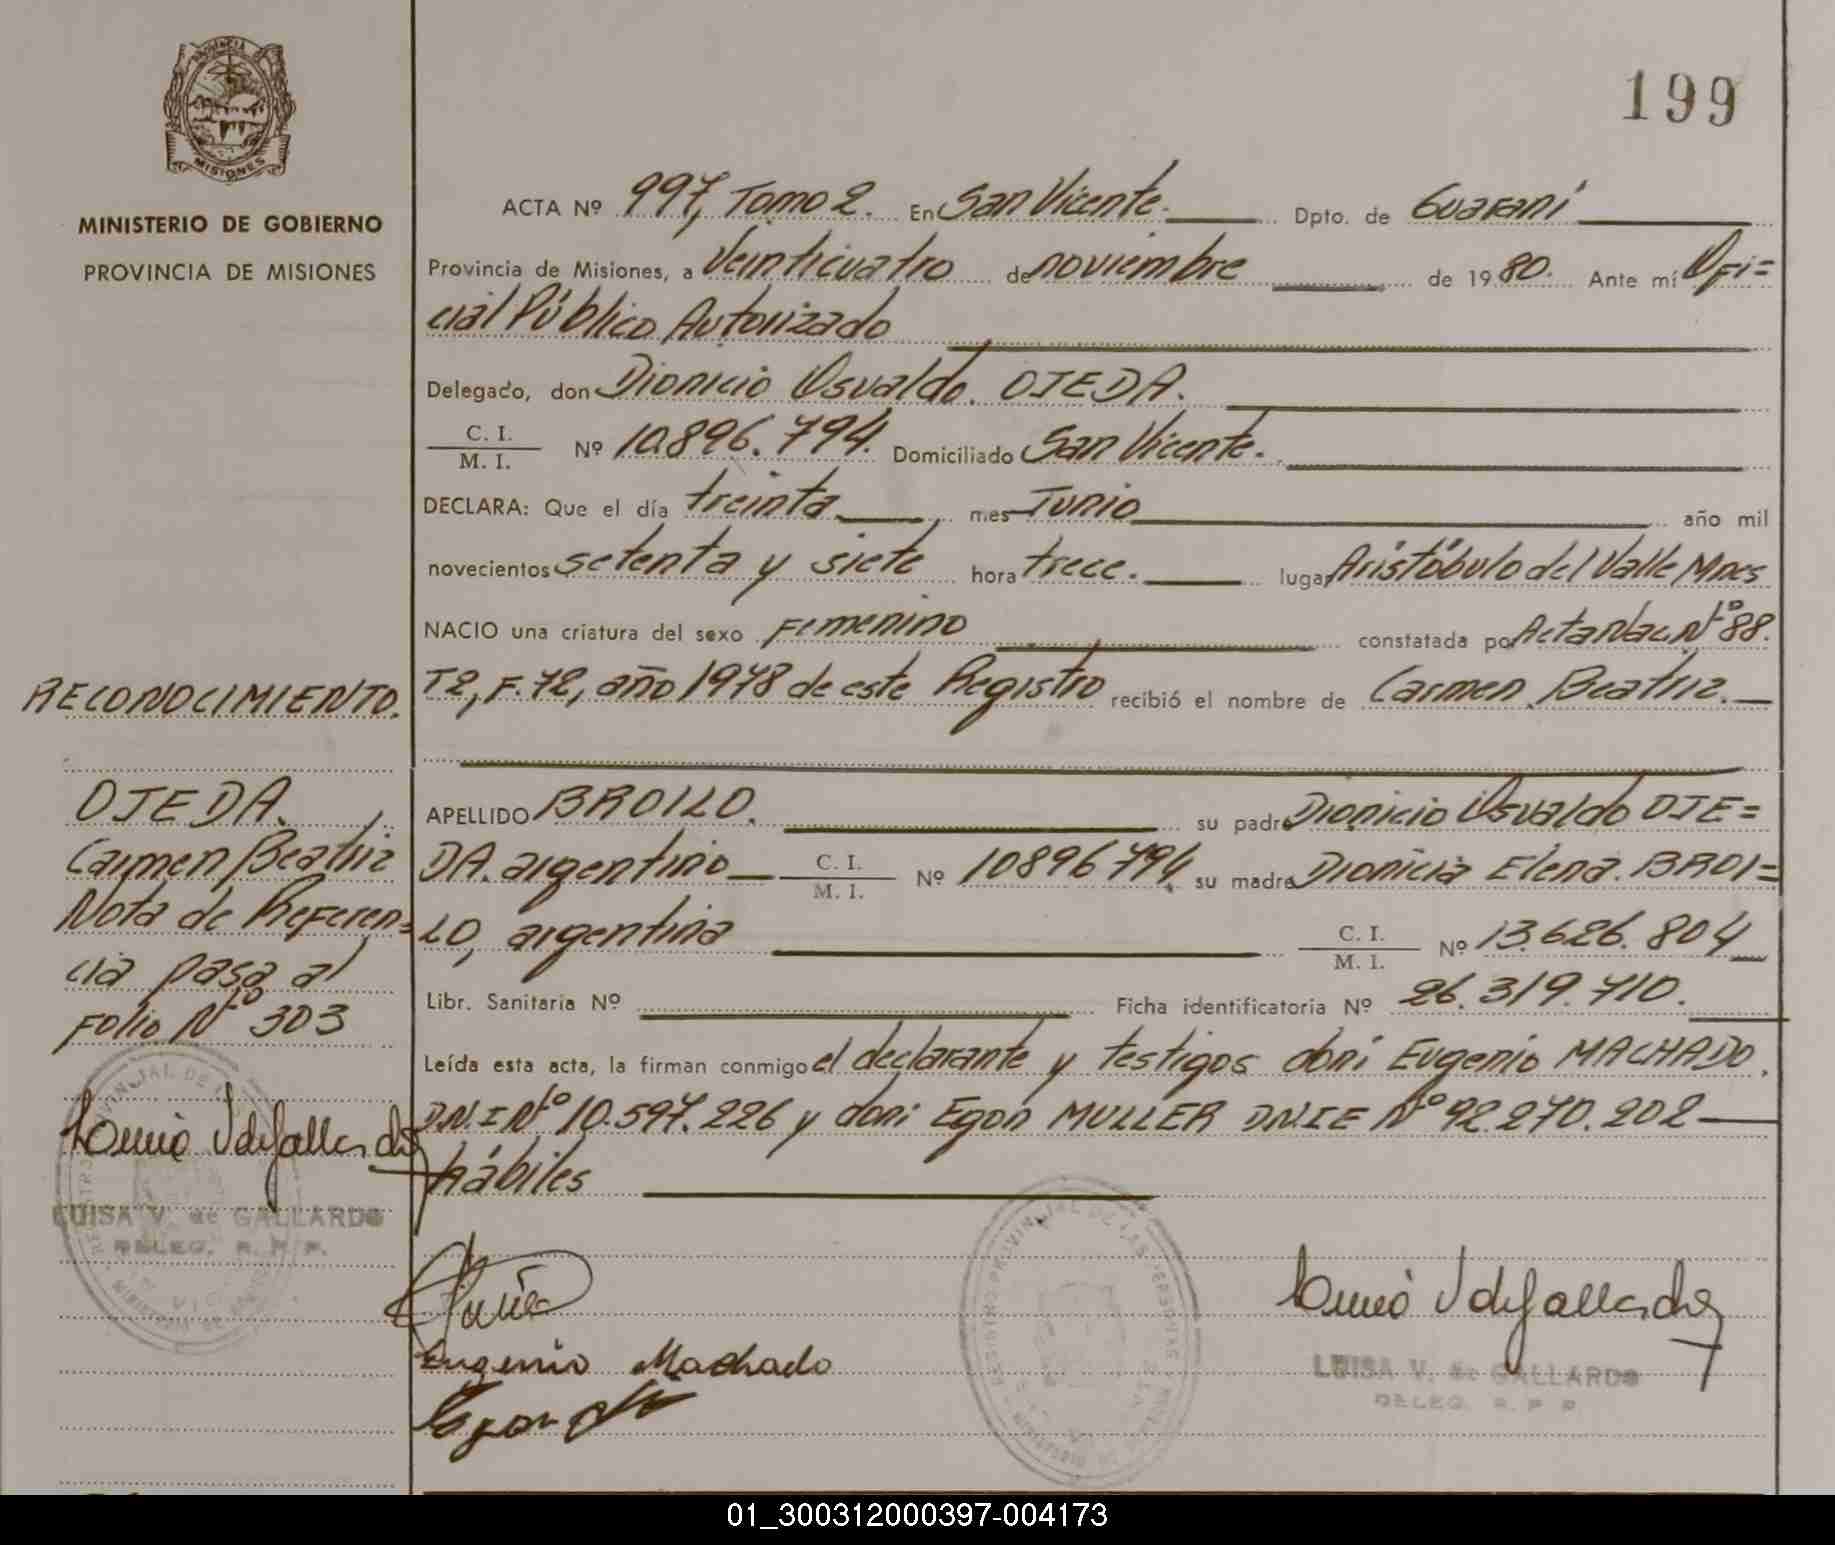 PROVINCIA
MISIONES
MINISTERIO DE GOBIERNO
PROVINCIA DE MISIONES
199
ACTA Nº 997, Tomo 2. En San Vicente. Dpto. de Guaraní
Provincia de Misiones, a Veinticuatro de noviembre de 1980. Ante mí Ofi=
cial Público Autorizado
Delegado, don Dionicio Osvaldo. OJEDA.
C. I.
M. I. Nº 10.896.794. Domiciliado San Vicente.
DECLARA: Que el día treinta, mes Junio año mil
novecientos setenta y siete hora trece. lugar Aristóbulo del Valle Mnes
NACIO una criatura del sexo Femenino constatada por Acta Nac. Nº 88.
T2, F.72, año 1978 de este Registro recibió el nombre de Carmen Beatriz.
RECONOCIMIENTO.
OJEDA.
Carmen Beatriz
Nota de Referen=
cia pasa al
Folio Nº 303
APELLIDO BROILO. su padre Dionicio Osvaldo OJE=
DA. argentino C. I.
M. I. Nº 10896794, su madre Dionicia Elena. BROI=
LO, argentina C. I.
M. I. Nº 13.626.804
Libr. Sanitaria Nº Ficha identificatoria Nº 26.319.710.
Leída esta acta, la firman conmigo el declarante y testigos don: Eugenio MACHADO.
D.N.I Nº 10.597.226 y don: Egon MULLER DNIE Nº 92.270.202
hábiles
LUISA V. de GALLARDO
DELEG. R. P. P.
Eugenio Machado
Egon
REGISTRO PROVINCIAL DE LAS PERSONAS
LUISA V. de GALLARDO
DELEG. R. P. P.
01_300312000397-004173